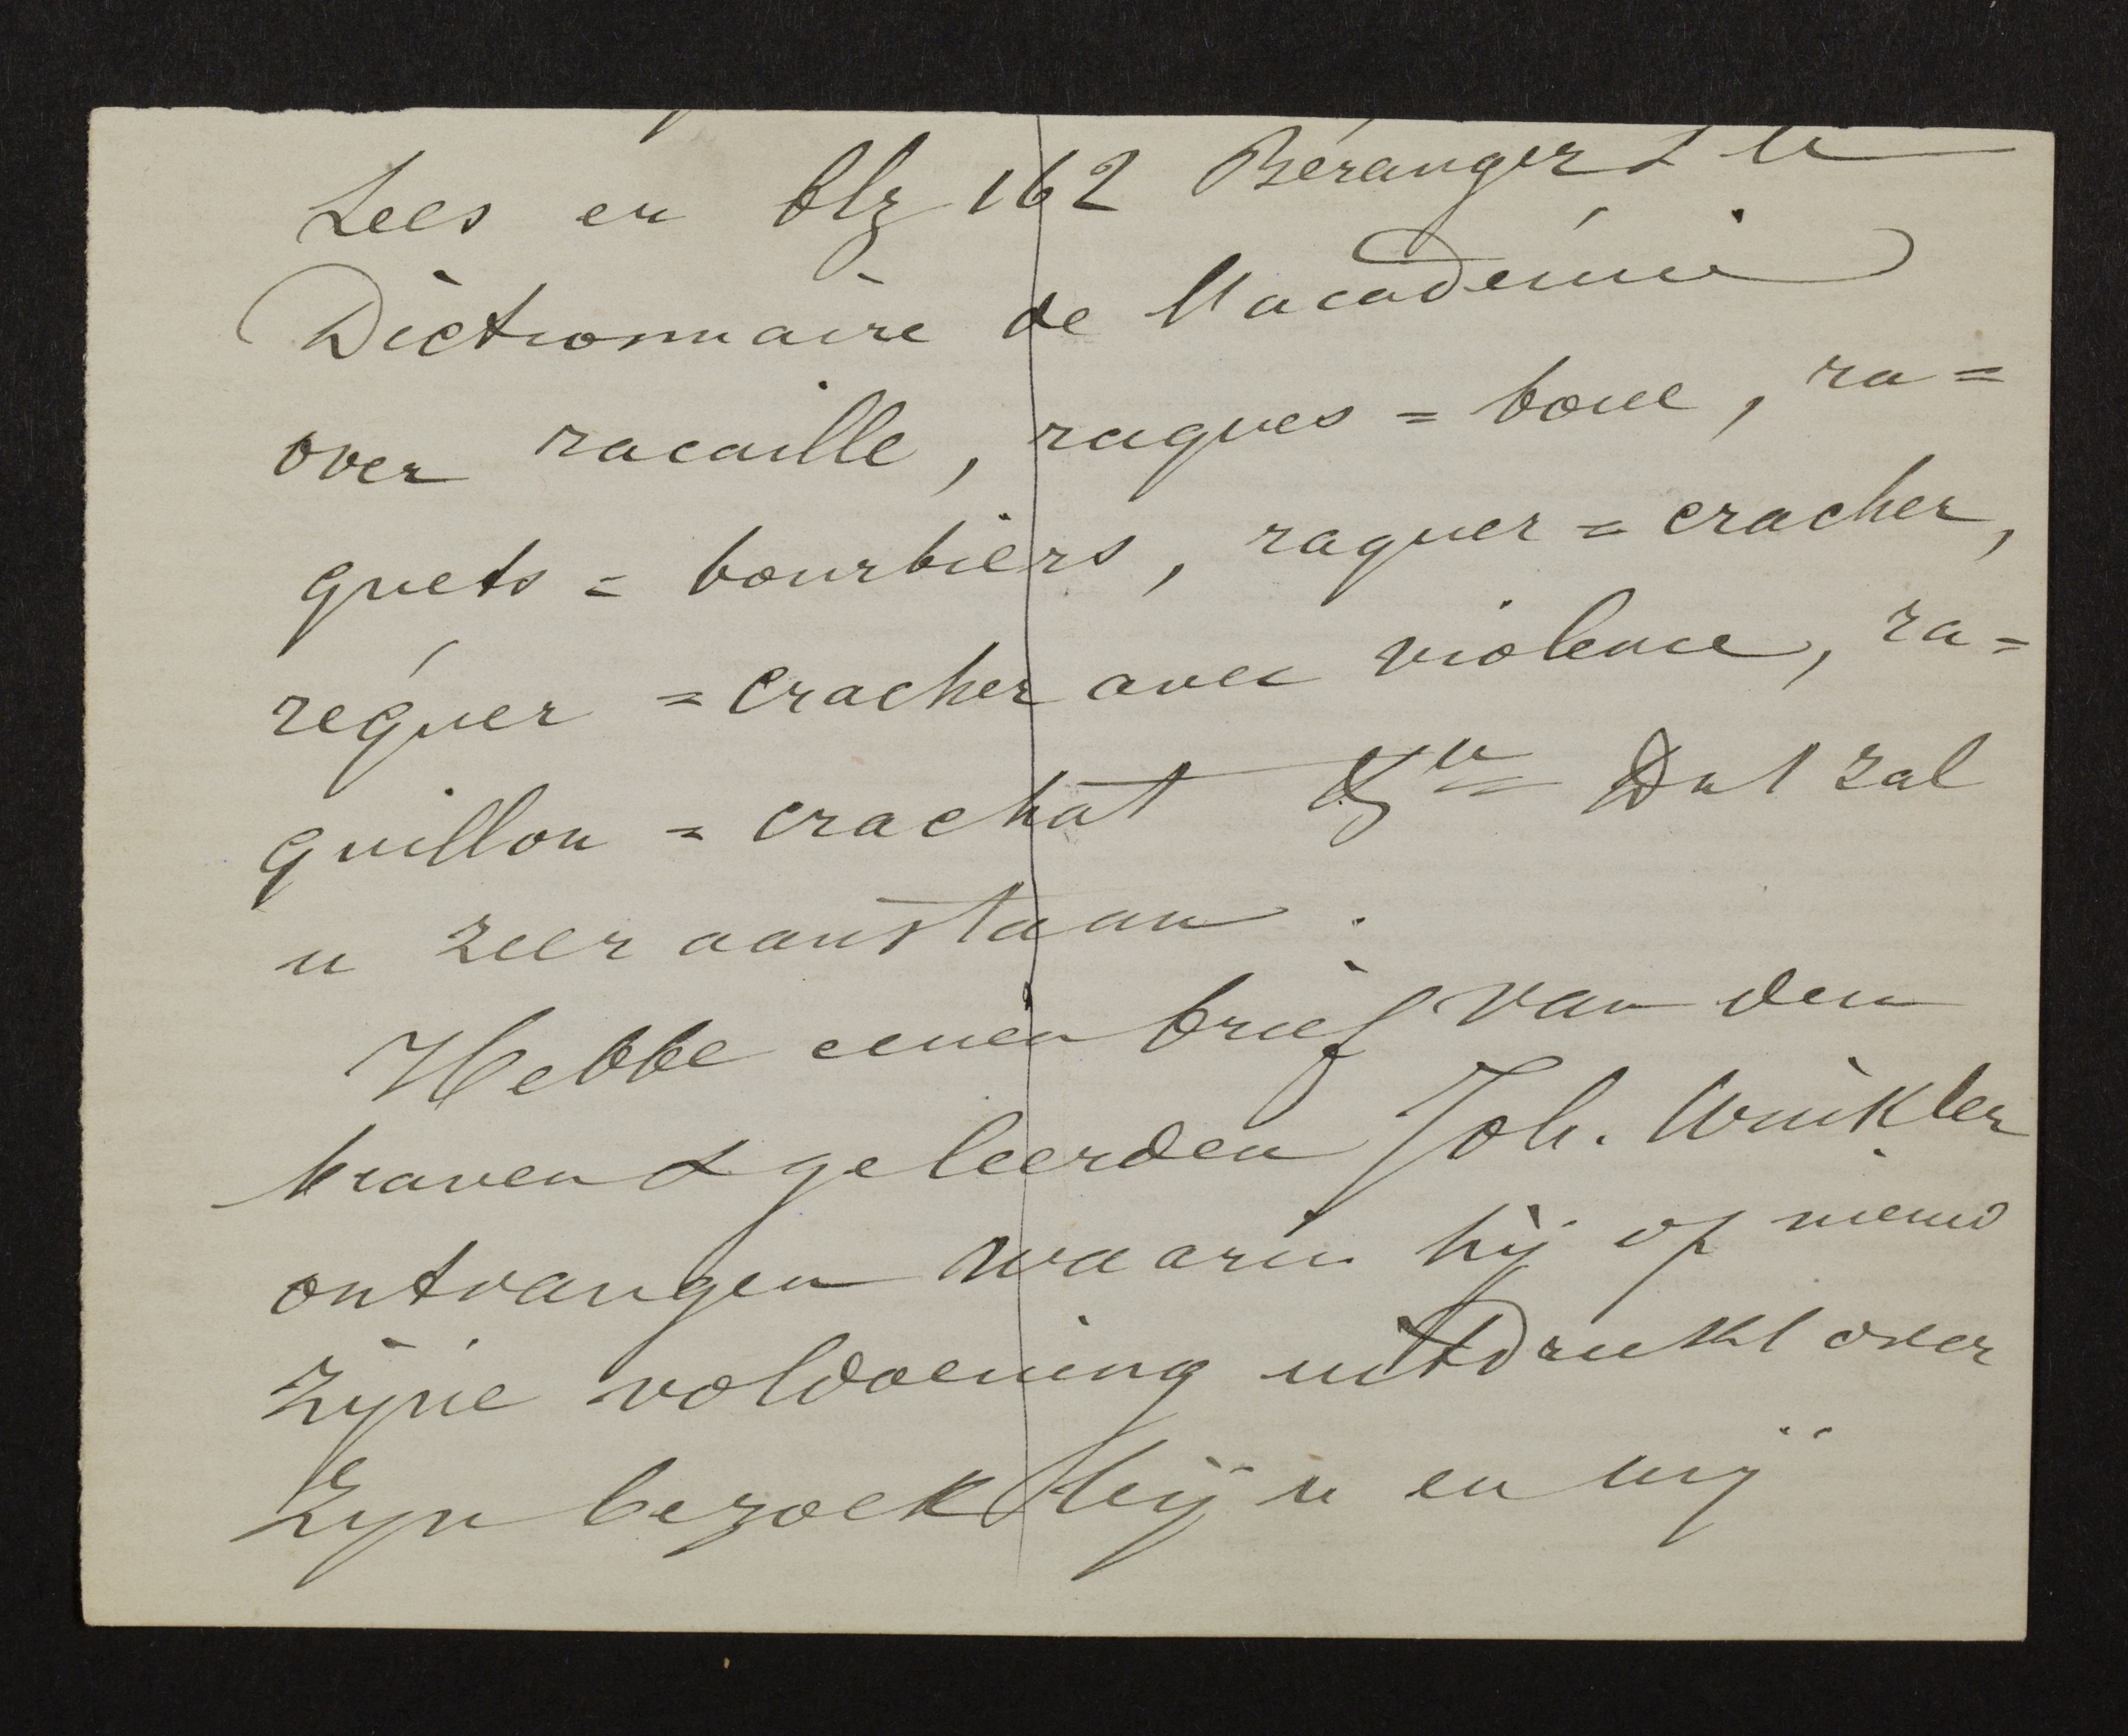 Lees er blz 162 Béranger & le
Dictionnaire de l'académie
over racaille, raques = boue, ra=
quets = bourbiers, raquer = cracher,
réquer = cracher avec violence, ra=
quillon = crachat Dat zal
u zeer aanstaan.
Hebbe eenen brief van den
braven & geleerden Joh. Winkler
ontvangen waarin hij op nieuw
zyne voldoening uitdrukt over
zyn bezoek bij u en mij